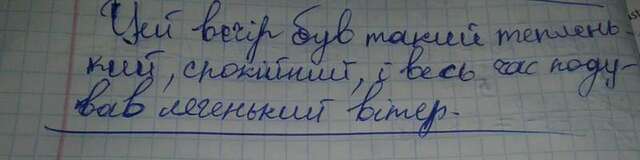 Цей вечір був такий теплень-
кий, спокійний, і весь час поду-
вав легенький вітер.